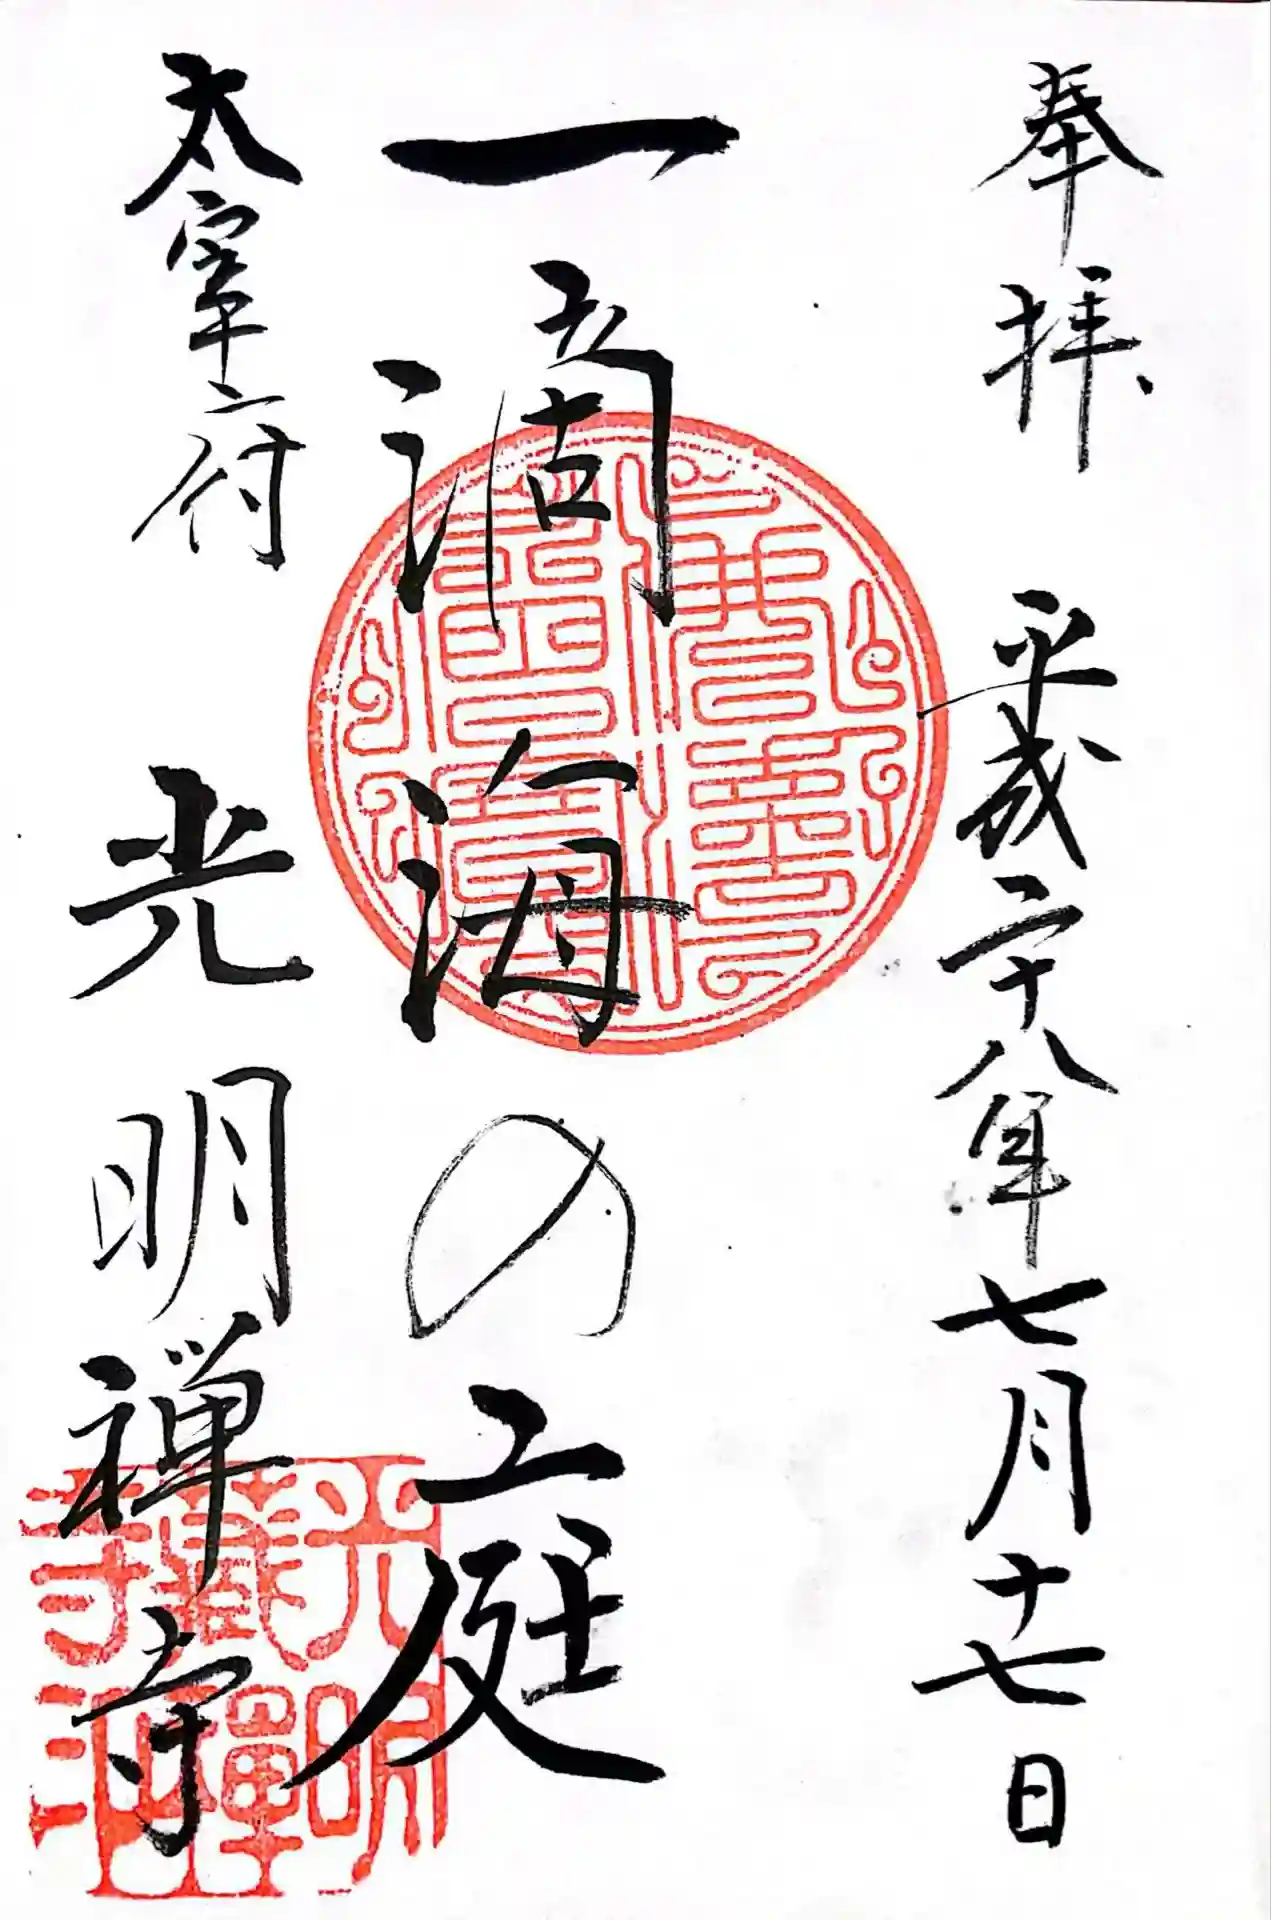 奉拝 平成二十八年七月十七日
一滴海の庭
太宰府 光明禅寺